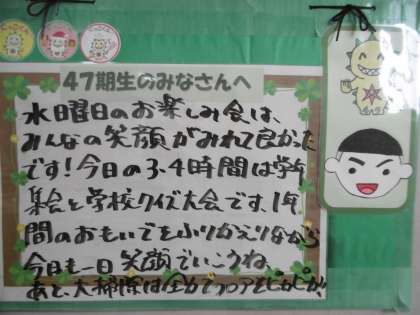 47期生のみなさんへ
水曜日のお楽しみ会は、
みんなの笑顔がみれて良かった
です!今日の3、4時間は学年
集会と学校クイズ大会です。1年
間のおもいでをふりかえりながら
今日も一日笑顔でいこうね。
あと、大掃除は全力でフロアをピカピカ!